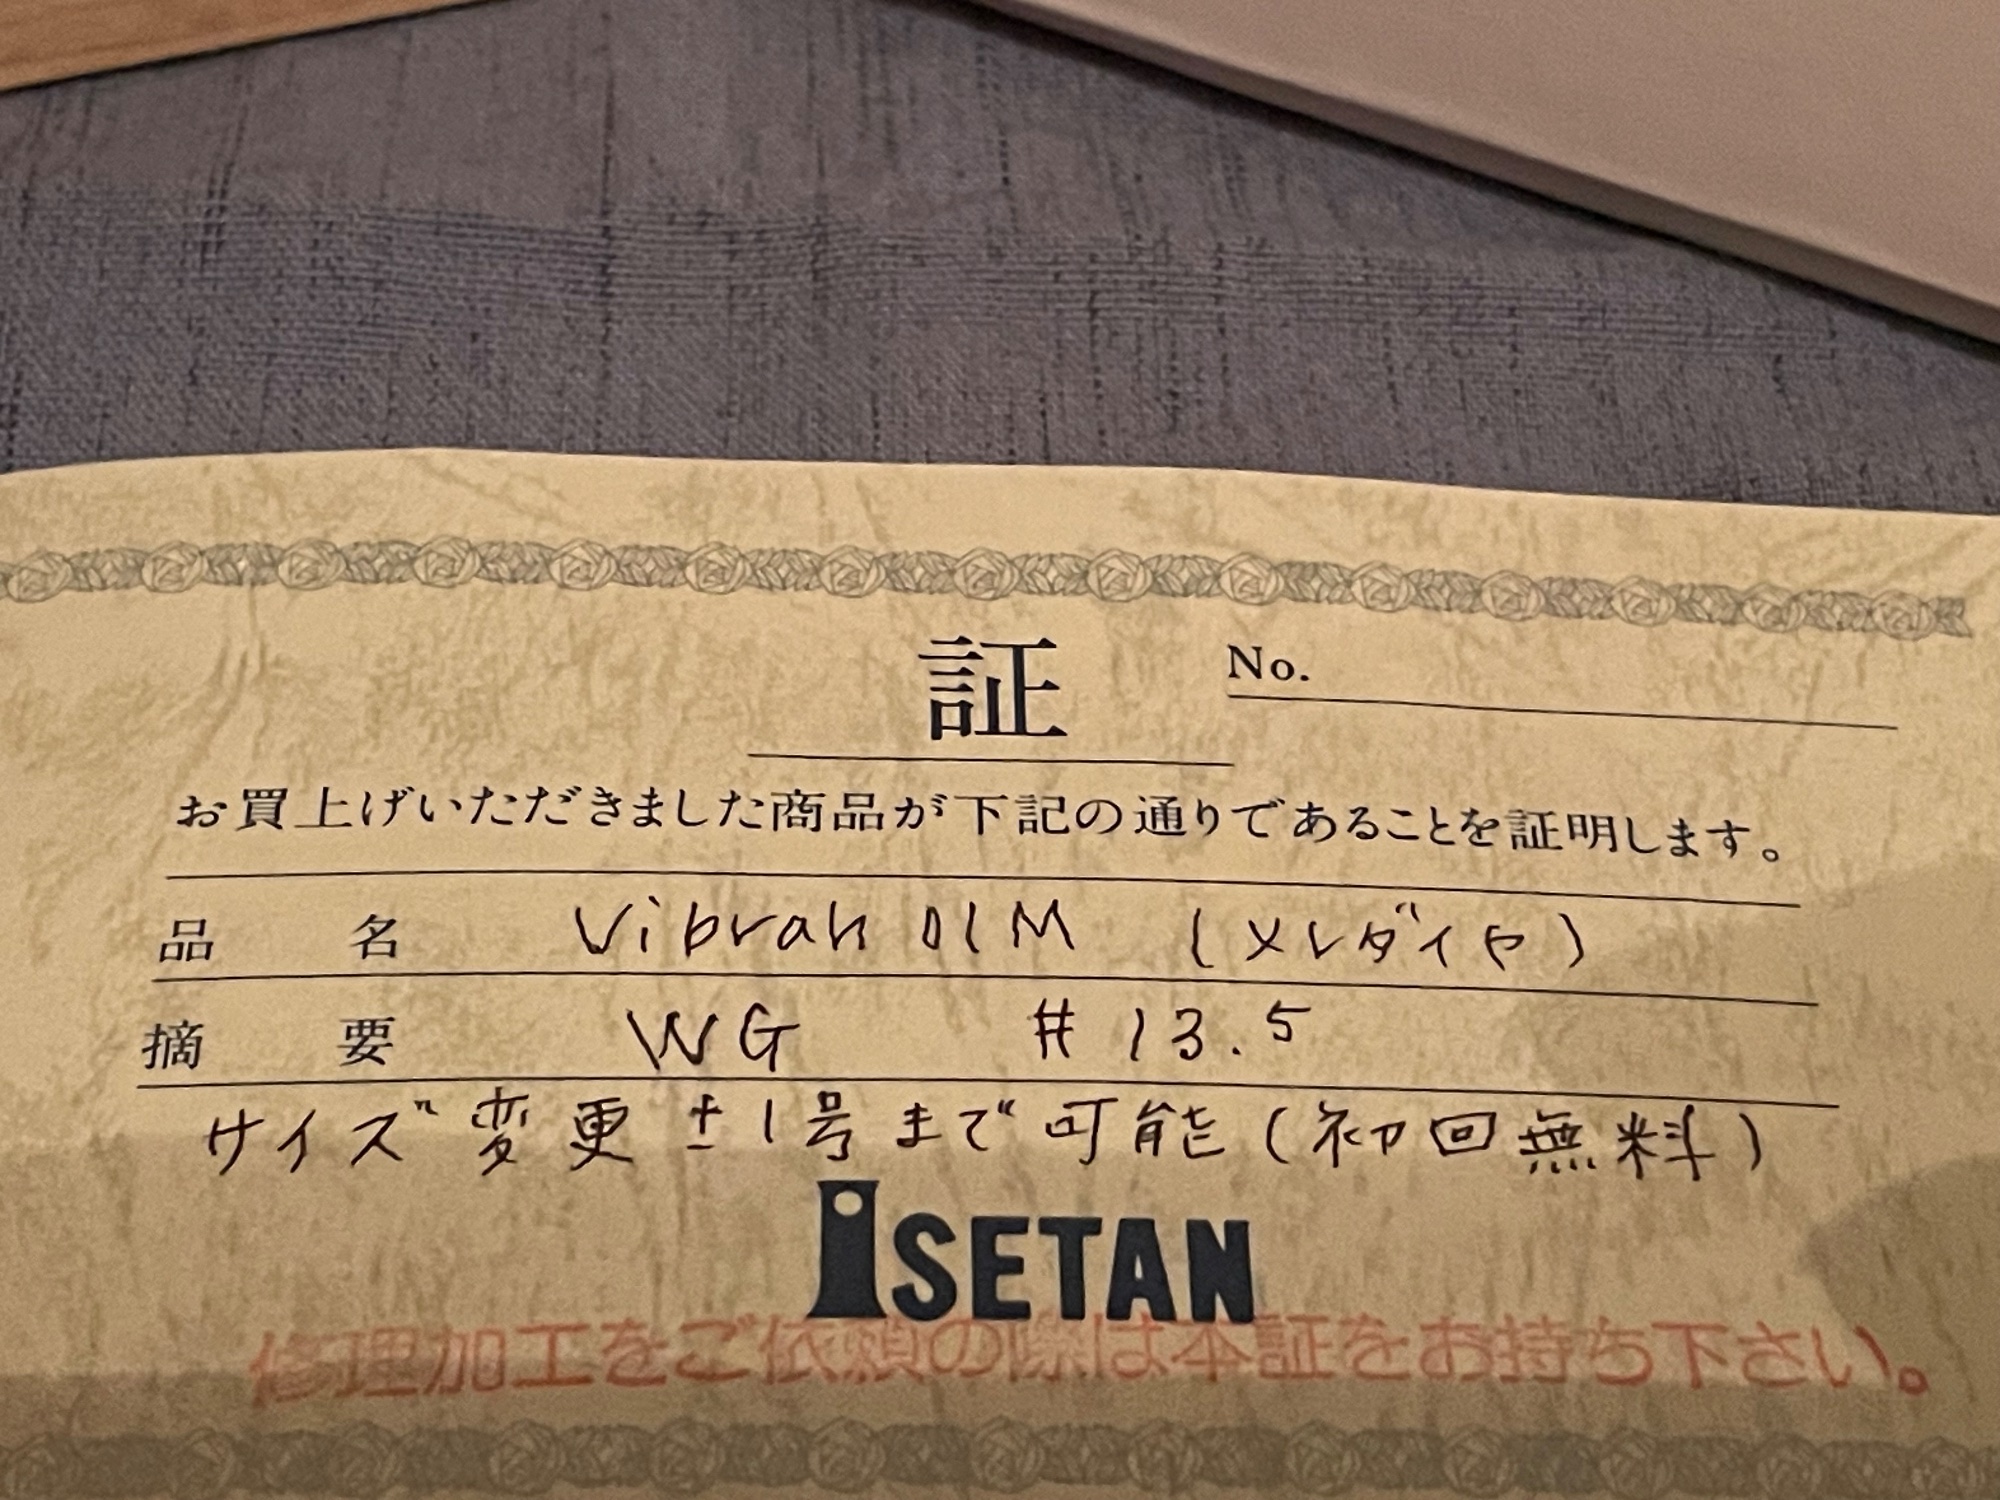 証
No.
お買上げいただきました商品が下記の通りであることを証明します。
品名 Vibrah 01M (メレダイヤ)
摘要 WG #13.5
サイズ変更±1号まで可能(初回無料)
ISETAN
修理加工をご依頼の際は本証をお持ち下さい。